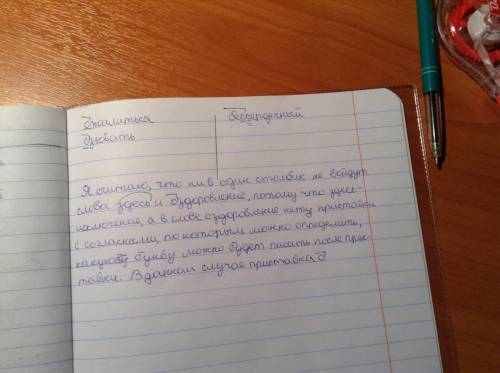 Сжалиться бессердечный
Сжевать
Я считаю, что ни в один столбик не войдут
слова здесь и оздоровление, потому что здесь-
исключение, а в слове оздоровление нету приставки
с согласными, по которым можно определить,
какую букву можно будет писать после прис-
тавки. В данном случае приставка О